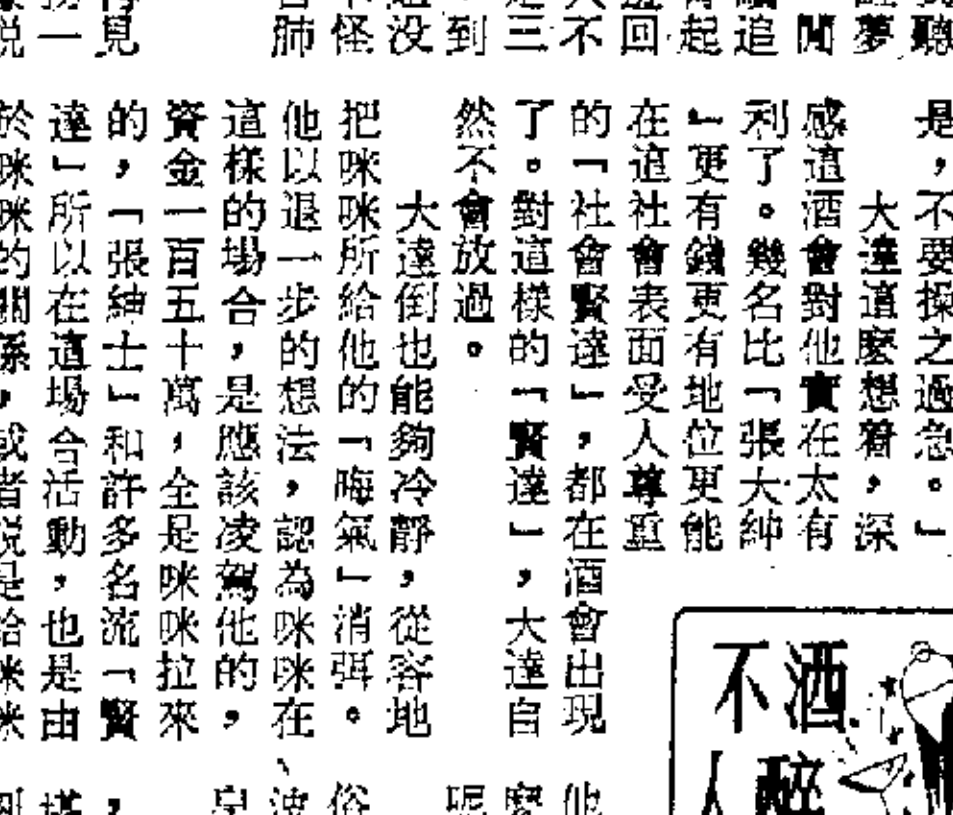 聽
夢
聞
追
起
回
不
三
到
没
怪
肺
見
一
説
是，不要操之過急。」
大達這麼想着，深
感這酒會對他實在太有
利了。幾名比「張大紳
」更有錢更有地位更能
在這社會表面受人尊重
的「社會賢達」，都在酒會出現
了。對這樣的「賢達」，大達自
然不會放過。
大達倒也能夠冷靜，從容地
把咪咪所給他的「晦氣」消弭。
他以退一步的想法，認為咪咪在
這樣的場合，是應該凌駕他的，
資金一百五十萬，全是咪咪拉來
的，「張紳士」和許多名流「賢
達」所以在這場合活動，也是由
於咪咪的關係，或者説是給咪咪
酒醉
不人
他
麼
呢
俗